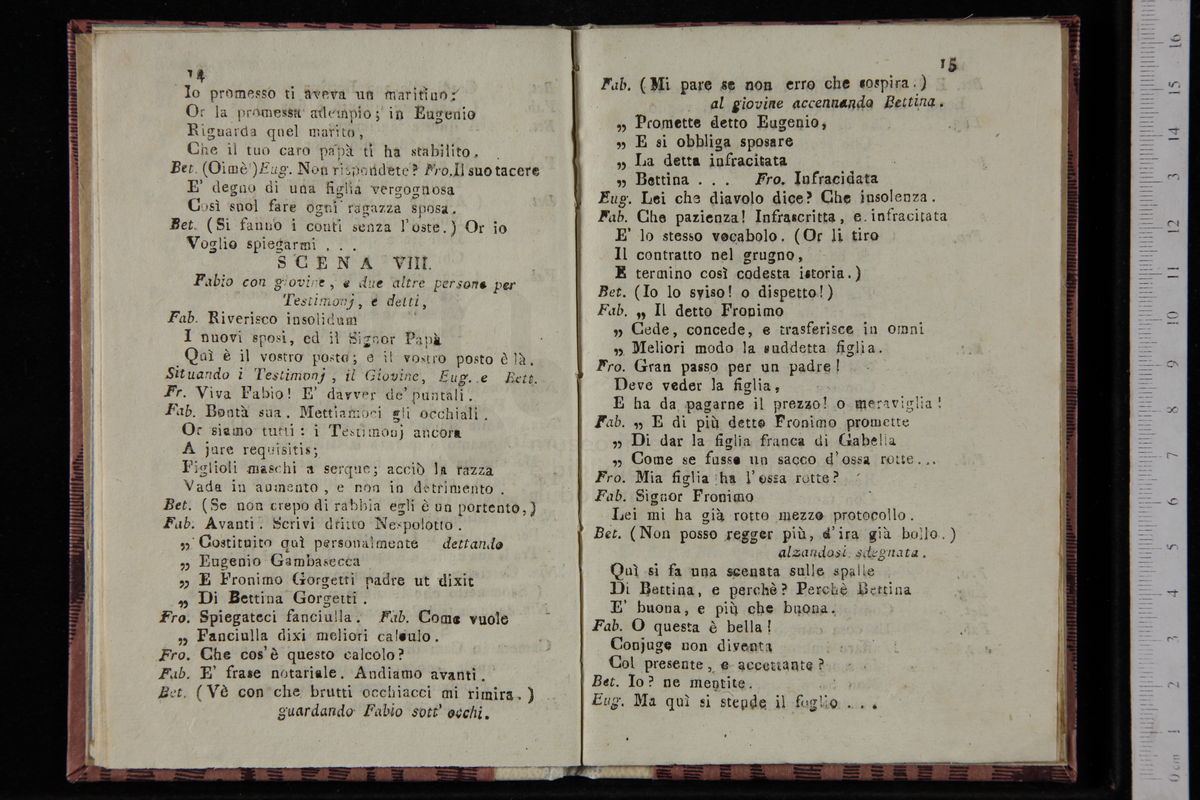 14
Io promesso ti aveva un maritino:
Or la promessa adempio; in Eugenio
Riguarda quel marito,
Che il tuo caro papà ti ha stabilito.
Bet. (Oimè!) Eug. Non rispondete? Fro. Il suo tacere
E' degno di una figlia vergognosa
Così suol fare ogni ragazza sposa.
Bet. (Si fanno i conti senza l'oste.) Or io
Voglio spiegarmi . . .
SCENA VIII.
Fabio con giovine, e due altre persone per
Testimonj, e detti,
Fab. Riverisco insolidum
I nuovi sposi, ed il Signor Papà
Quì è il vostro posto; e il vostro posto è là.
Situando i Testimonj, il Giovine, Eug. e Bett.
Fr. Viva Fabio! E' davver de' puntali.
Fab. Bontà sua. Mettiamoci gli occhiali.
Or siamo tutti: i Testimonj ancora
A jure requisitis;
Figlioli maschi a serque; acciò la razza
Vada in aumento, e non in detrimento.
Bet. (Se non crepo di rabbia egli è un portento.)
Fab. Avanti. Scrivi dritto Nespolotto.
„ Costituito quì personalmente dettando
„ Eugenio Gambasecca
„ E Fronimo Gorgetti padre ut dixit
„ Di Bettina Gorgetti.
Fro. Spiegateci fanciulla. Fab. Come vuole
„ Fanciulla dixi meliori calculo.
Fro. Che cos'è questo calcolo?
Fab. E' frase notariale. Andiamo avanti.
Bet. (Vè con che brutti occhiacci mi rimira.)
guardando Fabio sott' occhi.
15
Fab. (Mi pare se non erro che sospira.)
al giovine accennando Bettina.
„ Promette detto Eugenio,
„ E si obbliga sposare
„ La detta infracitata
„ Bettina . . . Fro. Infracidata
Eug. Lei che diavolo dice? Che insolenza.
Fab. Che pazienza! Infrascritta, e infracitata
E' lo stesso vocabolo. (Or li tiro
Il contratto nel grugno,
E termino così codesta istoria.)
Bet. (Io lo sviso! o dispetto!)
Fab. „ Il detto Fronimo
„ Cede, concede, e trasferisce in omni
„ Meliori modo la suddetta figlia.
Fro. Gran passo per un padre!
Deve veder la figlia,
E ha da pagarne il prezzo! o meraviglia!
Fab. „ E di più detto Fronimo promette
„ Di dar la figlia franca di Gabella
„ Come se fusse un sacco d'ossa rotte...
Fro. Mia figlia ha l'ossa rotte?
Fab. Signor Fronimo
Lei mi ha già rotto mezzo protocollo.
Bet. (Non posso regger più, d'ira già bollo.)
alzandosi sdegnata.
Quì si fa una scenata sulle spalle
Di Bettina, e perchè? Perchè Bettina
E' buona, e più che buona.
Fab. O questa è bella!
Conjuge non diventa
Col presente, e accettante?
Bet. Io? ne mentite.
Eug. Ma quì si stende il foglio . . .